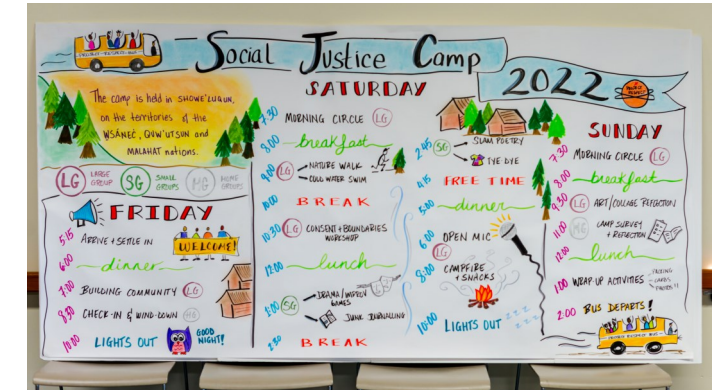 Social Justice Camp
2022
The camp is held in SHOWE'LUQUN,
on the territories of the
W̱SÁNEĆ, QUW'UTSUN and
MALAHAT nations.
LG LARGE GROUP
SG SMALL GROUPS
HG HOME GROUPS
FRIDAY
5:15 ARRIVE + SETTLE IN
WELCOME!
6:00 dinner
7:00 BUILDING COMMUNITY LG
8:30 CHECK-IN & WIND-DOWN HG
10:00 LIGHTS OUT
GOOD NIGHT!
SATURDAY
7:30 MORNING CIRCLE LG
8:00 breakfast
9:00 LG NATURE WALK
COLD WATER SWIM
10:00 BREAK
10:30 LG CONSENT + BOUNDARIES
WORKSHOP
12:00 lunch
1:00 SG DRAMA/IMPROV
GAMES
JUNK JOURNALLING
2:30 BREAK
2:45 SG SLAM POETRY
TYE DYE
4:15 FREE TIME
5:00 dinner
6:00 OPEN MIC
LG
8:00 CAMPFIRE
+ SNACKS
10:00 LIGHTS OUT
z z z
z z z
SUNDAY
7:30 MORNING CIRCLE LG
8:00 breakfast
9:30 LG ART/COLLAGE REFLECTION
11:00 HG CAMP SURVEY
+ REFLECTION
12:00 lunch
1:00 WRAP-UP ACTIVITIES
CARDS
PHOTO!!
2:00 BUS DEPARTS!